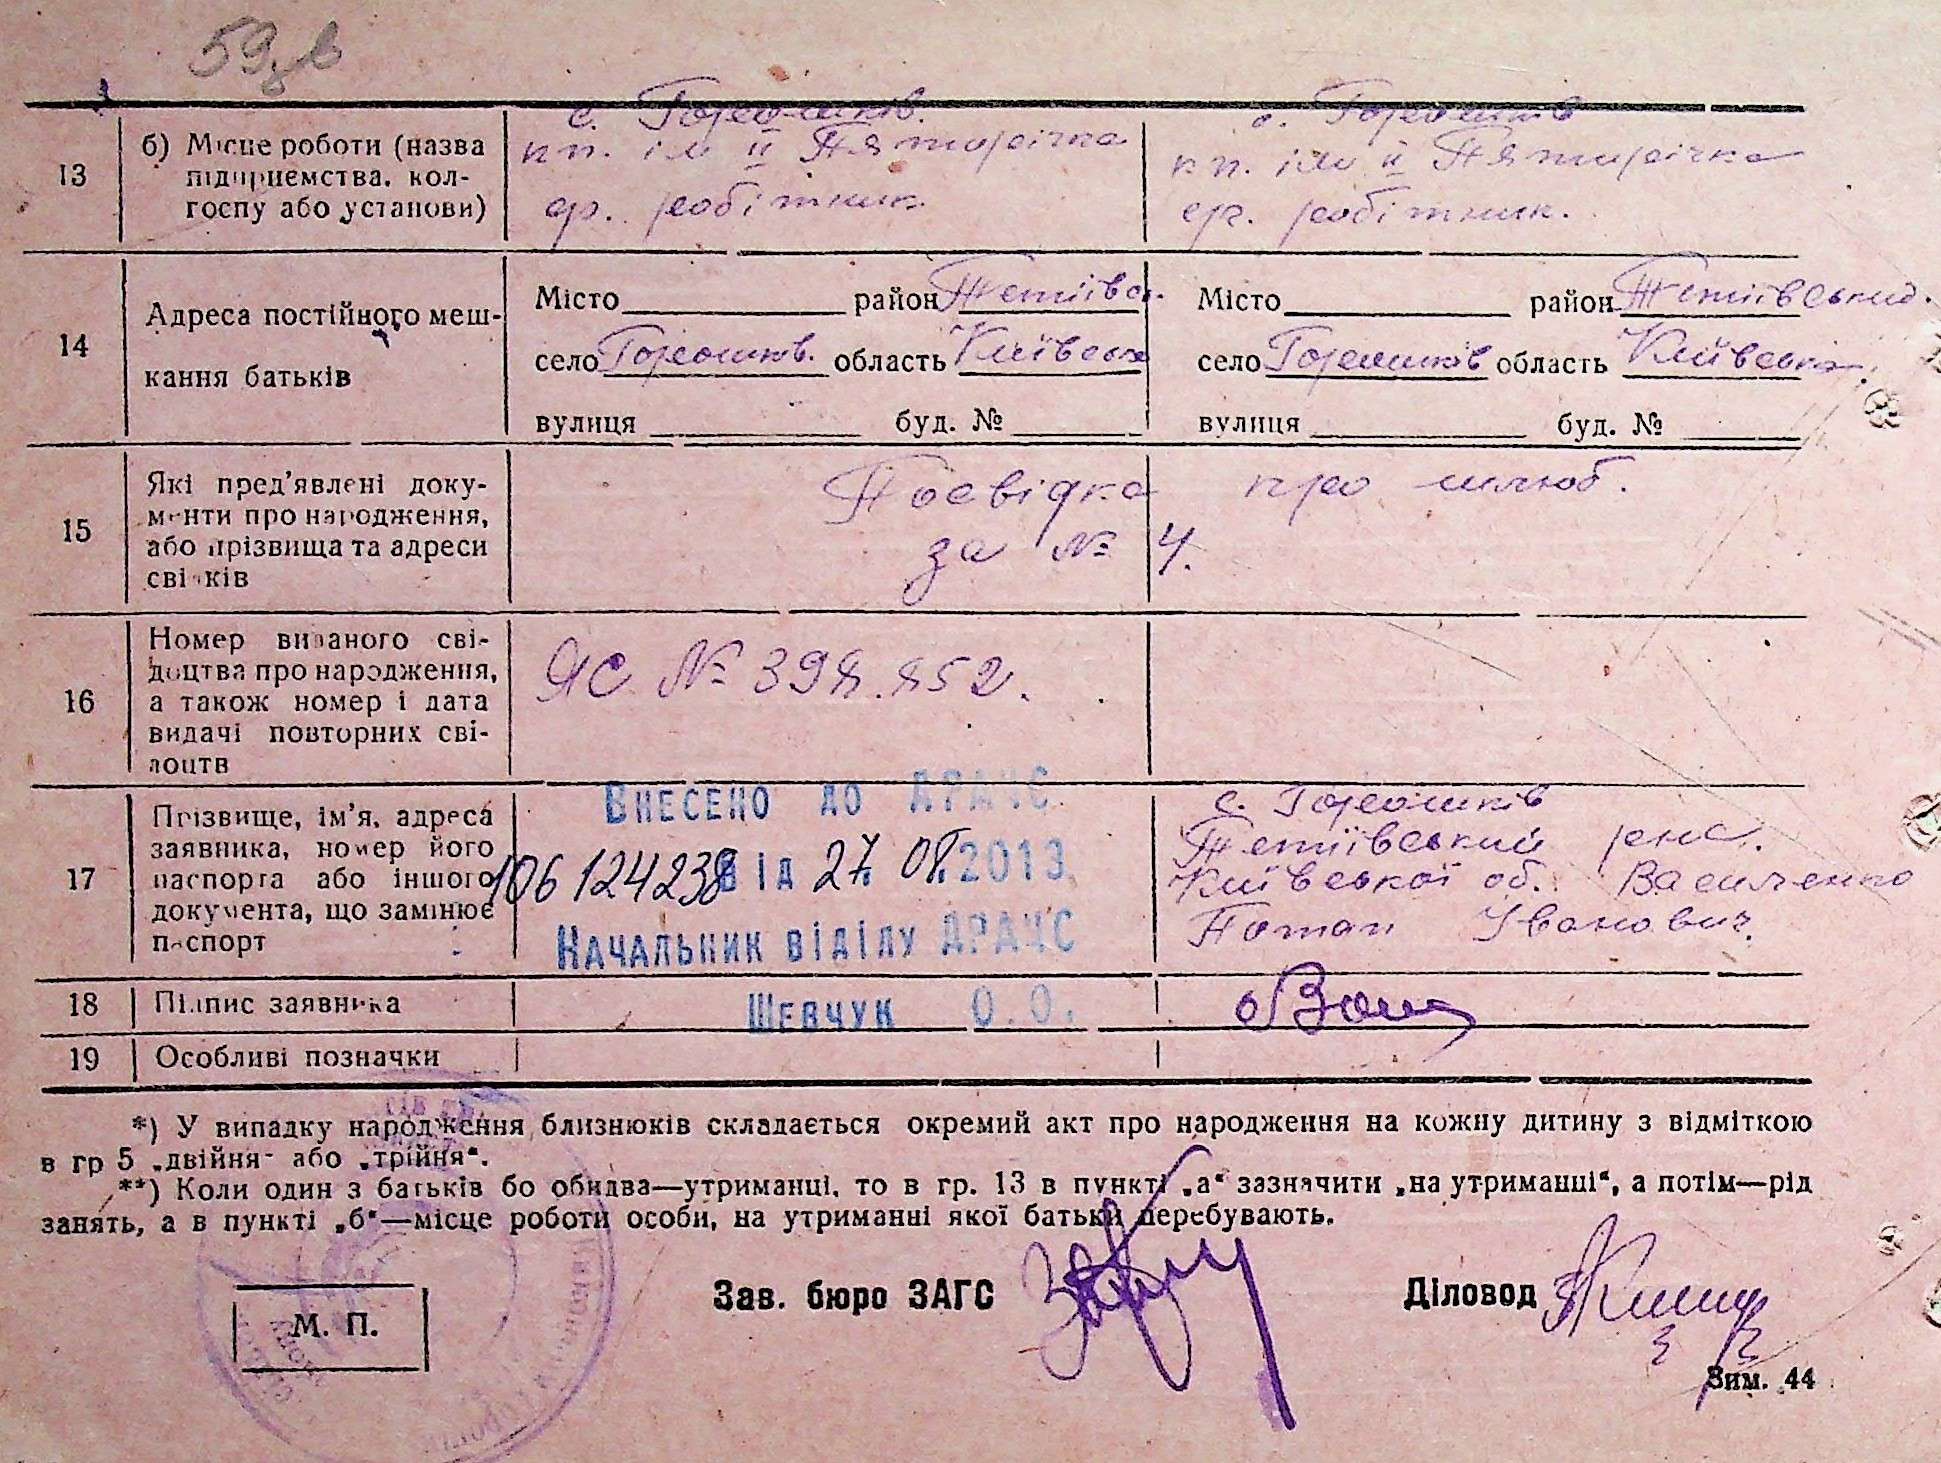 59
13
б) Місце роботи (назва
підприємства, кол-
госпу або установи)
с. Горошків.
кп. ім ІІ Пятирічка
ср. робітник.
с. Горошків
кп. ім ІІ Пятирічка
ср. робітник.
14
Адреса постійного меш-
кання батьків
Місто район Тетіївсь.
село Горошків. область Київська
вулиця буд. №
Місто район Тетіївський.
село Горошків область Київська.
вулиця буд. №
15
Які пред'явлені доку-
менти про народження,
або прізвища та адреси
свідків
Посвідка про шлюб.
за № 4.
16
Номер виданого сві-
доцтва про народження,
а також номер і дата
видачі повторних сві-
доцтв
ЯС № 398.852.
17
Прізвище, ім'я, адреса
заявника, номер його
паспорта або іншого
документа, що замінює
паспорт
Внесено до ДРАЦС
106 124238 від 27. 08. 2013
Начальник відділу ДРАЦС
Шевчук О.О.
с. Горошків
Тетіївський рна.
Київської об. Василенко
Потап Іванович.
18
Підпис заявника
19
Особливі позначки
*) У випадку народження близнюків складається окремий акт про народження на кожну дитину з відміткою
в гр 5 „двійня" або „трійня".
**) Коли один з батьків бо обидва—утриманці, то в гр. 13 в пункті „а" зазначити „на утриманні", а потім—рід
занять, а в пункті „б"—місце роботи особи, на утриманні якої батьки перебувають.
М. П.
Зав. бюро ЗАГС
Діловод
Зим. 44